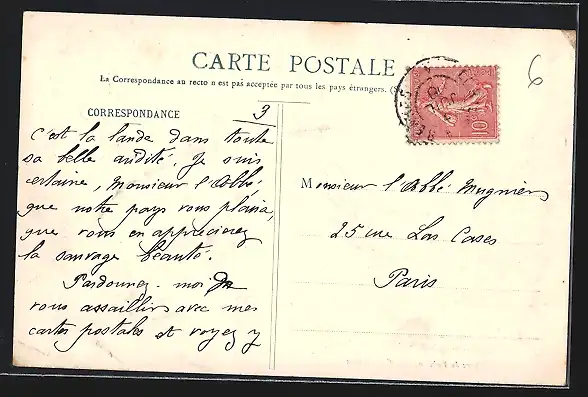 CARTE POSTALE
La Correspondance au recto n'est pas acceptée par tous les pays étrangers. (
6
CORRESPONDANCE
3
C'est la lande dans toute
sa belle aridité. Je suis
certaine, Monsieur l'Abbé,
que notre pays vous plaira,
que vous en apprécierez
la sauvage beauté.
Pardonnez-moi de
vous assaillir avec mes
cartes postales et voyez y
Monsieur l'Abbé Mugnier
25 rue Las Cases
Paris
10